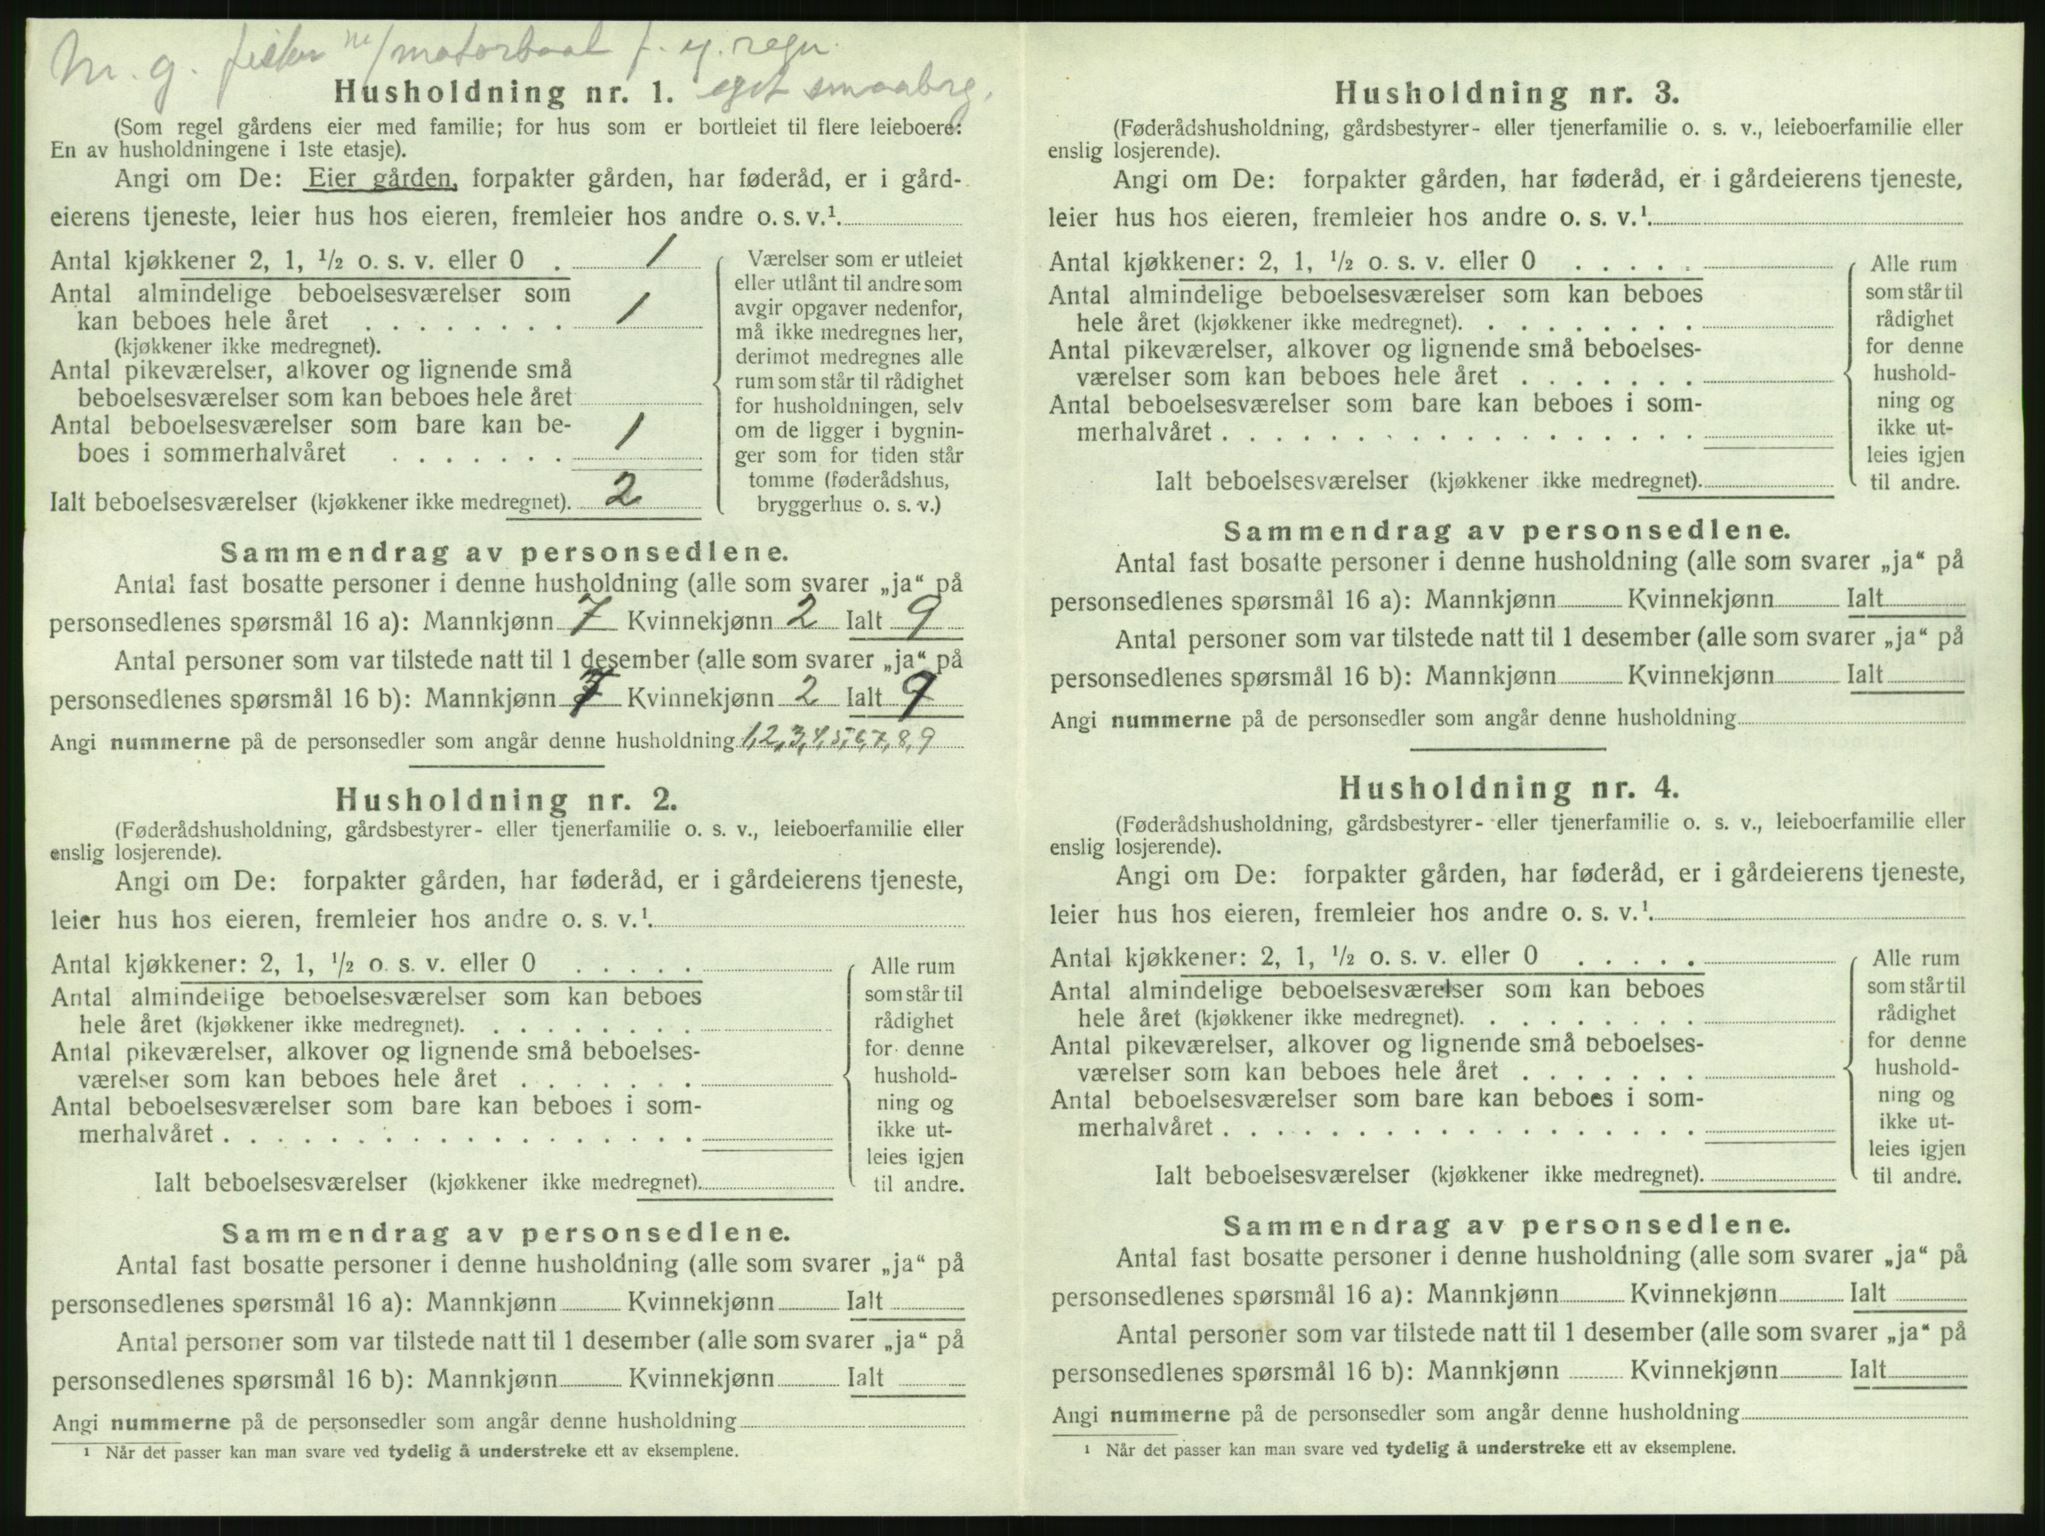 M. g. fisker m/motorbaat f. eg. regn.
eget smaabrg.
Husholdning nr. 1.
(Som regel gårdens eier med familie; for hus som er bortleiet til flere leieboere:
En av husholdningene i 1ste etasje).
Angi om De: Eier gården, forpakter gården, har føderåd, er i gård-
eierens tjeneste, leier hus hos eieren, fremleier hos andre o. s. v.¹.
Antal kjøkkener 2, 1, ½ o. s. v. eller 0 . 1
Antal almindelige beboelsesværelser som
kan beboes hele året . . . . . . . . 1
(kjøkkener ikke medregnet).
Antal pikeværelser, alkover og lignende små
beboelsesværelser som kan beboes hele året
Antal beboelsesværelser som bare kan be-
boes i sommerhalvåret . . . . . . . 1
Ialt beboelsesværelser (kjøkkener ikke medregnet). 2
Værelser som er utleiet
eller utlånt til andre som
avgir opgaver nedenfor,
må ikke medregnes her,
derimot medregnes alle
rum som står til rådighet
for husholdningen, selv
om de ligger i bygnin-
ger som for tiden står
tomme (føderådshus,
bryggerhus o. s. v.)
Sammendrag av personsedlene.
Antal fast bosatte personer i denne husholdning (alle som svarer „ja“ på
personsedlenes spørsmål 16 a): Mannkjønn 7 Kvinnekjønn 2 Ialt 9
Antal personer som var tilstede natt til 1 desember (alle som svarer „ja“ på
personsedlenes spørsmål 16 b): Mannkjønn 7 Kvinnekjønn 2 Ialt 9
Angi nummerne på de personsedler som angår denne husholdning 1,2,3,4,5,6,7,8,9
Husholdning nr. 2.
(Føderådshusholdning, gårdsbestyrer- eller tjenerfamilie o. s. v., leieboerfamilie eller
enslig losjerende).
Angi om De: forpakter gården, har føderåd, er i gårdeierens tjeneste,
leier hus hos eieren, fremleier hos andre o. s. v.¹.
Antal kjøkkener: 2, 1, ½ o. s. v. eller 0 . . . . .
Antal almindelige beboelsesværelser som kan beboes
hele året (kjøkkener ikke medregnet). . . . . . . . .
Antal pikeværelser, alkover og lignende små beboelses-
værelser som kan beboes hele året . . . . . . .
Antal beboelsesværelser som bare kan beboes i som-
merhalvåret . . . . . . . . . . . . . . . . . .
Ialt beboelsesværelser (kjøkkener ikke medregnet).
Alle rum
som står til
rådighet
for denne
hushold-
ning og
ikke ut-
leies igjen
til andre.
Sammendrag av personsedlene.
Antal fast bosatte personer i denne husholdning (alle som svarer „ja“ på
personsedlenes spørsmål 16 a): Mannkjønn Kvinnekjønn Ialt
Antal personer som var tilstede natt til 1 desember (alle som svarer „ja“ på
personsedlenes spørsmål 16 b): Mannkjønn Kvinnekjønn Ialt
Angi nummerne på de personsedler som angår denne husholdning
¹ Når det passer kan man svare ved tydelig å understreke ett av eksemplene.
Husholdning nr. 3.
(Føderådshusholdning, gårdsbestyrer- eller tjenerfamilie o. s. v., leieboerfamilie eller
enslig losjerende).
Angi om De: forpakter gården, har føderåd, er i gårdeierens tjeneste,
leier hus hos eieren, fremleier hos andre o. s. v.¹.
Antal kjøkkener: 2, 1, ½ o. s. v. eller 0 . . . . .
Antal almindelige beboelsesværelser som kan beboes
hele året (kjøkkener ikke medregnet). . . . . . . . .
Antal pikeværelser, alkover og lignende små beboelses-
værelser som kan beboes hele året . . . . . . .
Antal beboelsesværelser som bare kan beboes i som-
merhalvåret . . . . . . . . . . . . . . . . . .
Ialt beboelsesværelser (kjøkkener ikke medregnet).
Alle rum
som står til
rådighet
for denne
hushold-
ning og
ikke ut-
leies igjen
til andre.
Sammendrag av personsedlene.
Antal fast bosatte personer i denne husholdning (alle som svarer „ja“ på
personsedlenes spørsmål 16 a): Mannkjønn Kvinnekjønn Ialt
Antal personer som var tilstede natt til 1 desember (alle som svarer „ja“ på
personsedlenes spørsmål 16 b): Mannkjønn Kvinnekjønn Ialt
Angi nummerne på de personsedler som angår denne husholdning
Husholdning nr. 4.
(Føderådshusholdning, gårdsbestyrer- eller tjenerfamilie o. s. v., leieboerfamilie eller
enslig losjerende).
Angi om De: forpakter gården, har føderåd, er i gårdeierens tjeneste,
leier hus hos eieren, fremleier hos andre o. s. v.¹.
Antal kjøkkener: 2, 1, ½ o. s. v. eller 0 . . . . .
Antal almindelige beboelsesværelser som kan beboes
hele året (kjøkkener ikke medregnet). . . . . . . . .
Antal pikeværelser, alkover og lignende små beboelses-
værelser som kan beboes hele året . . . . . . .
Antal beboelsesværelser som bare kan beboes i som-
merhalvåret . . . . . . . . . . . . . . . . . .
Ialt beboelsesværelser (kjøkkener ikke medregnet).
Alle rum
som står til
rådighet
for denne
hushold-
ning og
ikke ut-
leies igjen
til andre.
Sammendrag av personsedlene.
Antal fast bosatte personer i denne husholdning (alle som svarer „ja“ på
personsedlenes spørsmål 16 a): Mannkjønn Kvinnekjønn Ialt
Antal personer som var tilstede natt til 1 desember (alle som svarer „ja“ på
personsedlenes spørsmål 16 b): Mannkjønn Kvinnekjønn Ialt
Angi nummerne på de personsedler som angår denne husholdning
¹ Når det passer kan man svare ved tydelig å understreke ett av eksemplene.